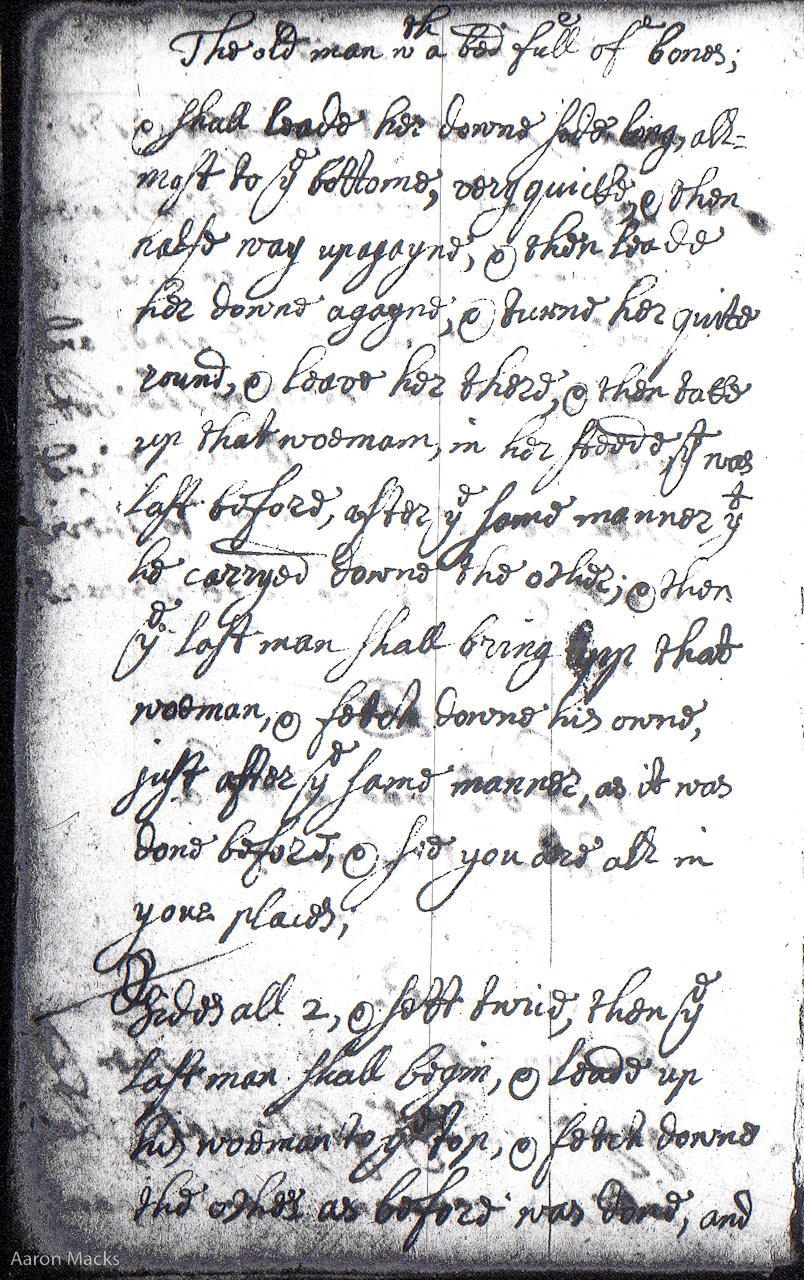 The old man wth a bed full of bones;
& shall leade her downe side long, all=
most to ye bottome, very quicke, & then
halfe way up agayne, & then leade
her downe agayne, & turne her quite
round, & leave her there, & then take
up that woemam, in her steede, yt was
last before, after ye same manner yt
he carryed downe the other; & then
ye last man shall bring upp that
woeman, & fetch downe his owne,
just after ye same manner, as it was
done before, & soe you are all in
your places;
Sides all 2, & sett twice, then ye
last man shall begin, & leade up
his woeman to ye top, & fetch downe
the other as before was done, and
Aaron Macks